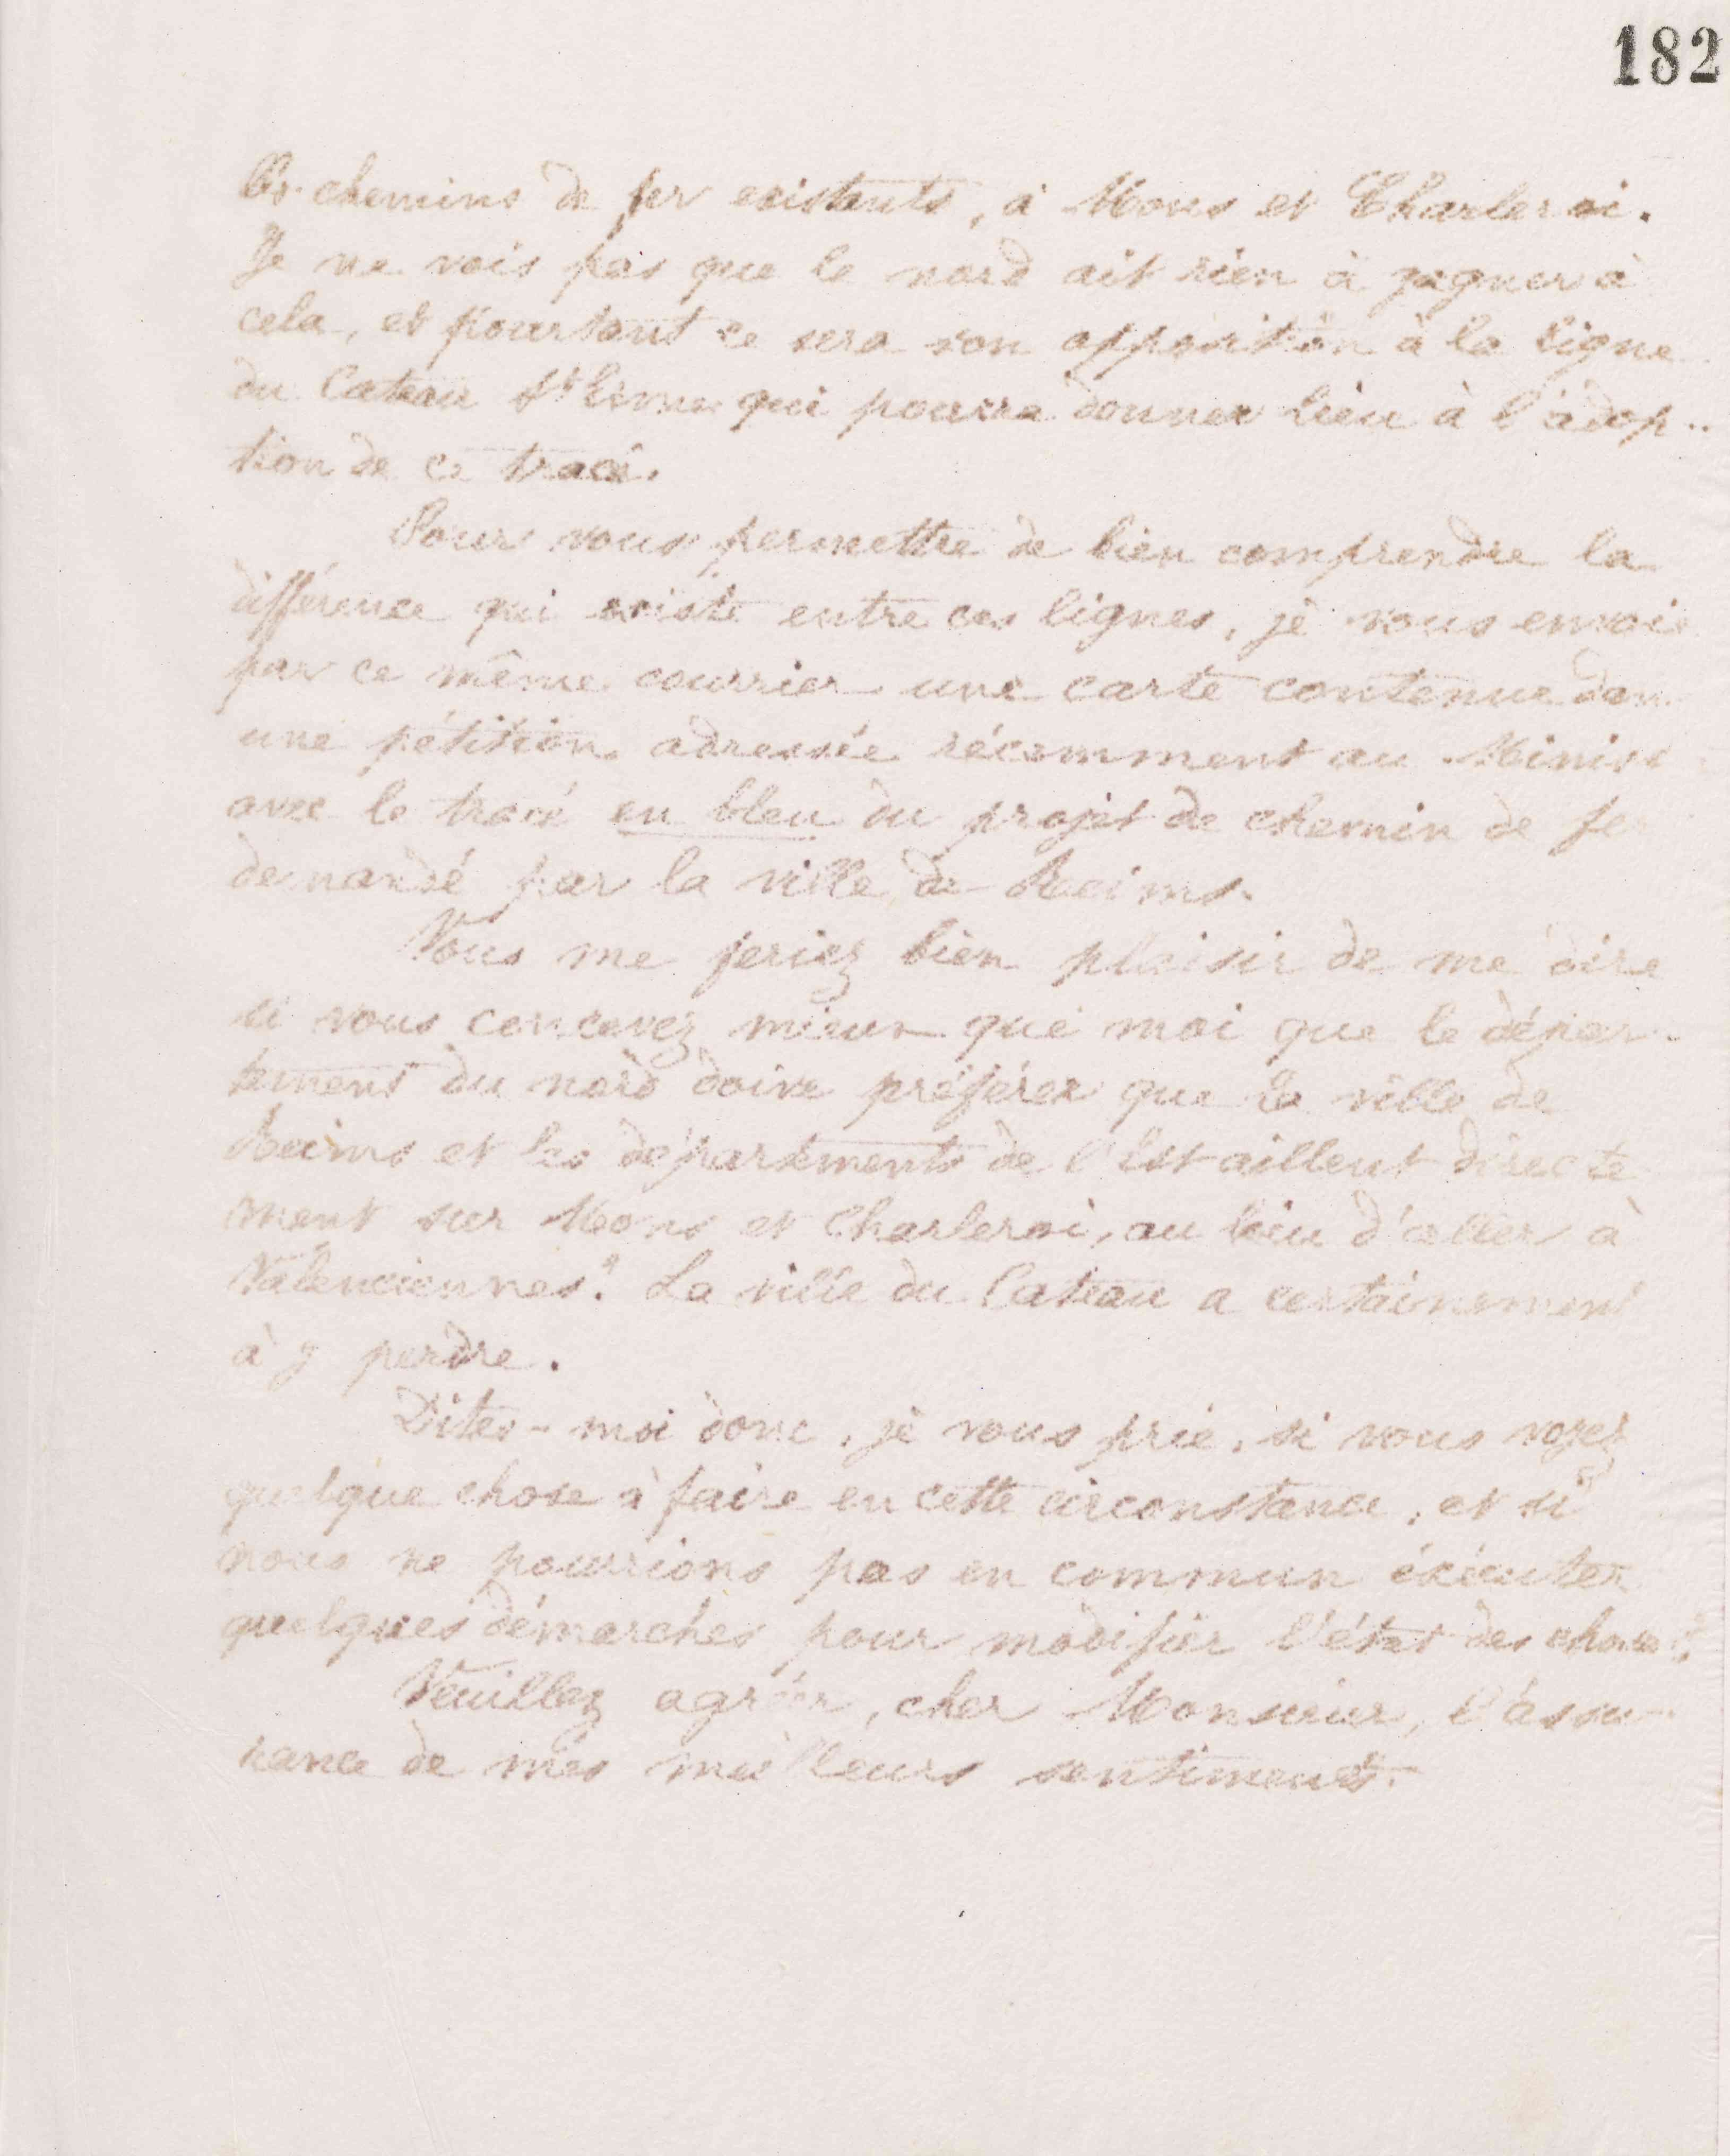 182
les chemins de fer existants, à Mons et Charleroi.
Je ne vois pas que le nord ait rien à gagner à
cela, et pourtant ce sera son opposition à la ligne
du Cateau St Erme qui pourra donner lieu à l'adop-
tion de ce tracé.
Pour vous permettre de bien comprendre la
différence qui existe entre ces lignes, je vous envoie
par ce même courrier une carte contenue dans
une pétition adressée récemment au Minist
avec le tracé en bleu du projet de chemin de fer
demandé par la ville de Reims.
Vous me feriez bien plaisir de me dire
si vous concevez mieux que moi que le dépar-
tement du nord doive préférer que la ville de
Reims et les départements de l'Est aillent directe
ment sur Mons et Charleroi, au lieu d'aller à
Valenciennes? La ville du Cateau a certainement
à y perdre.
Dites-moi donc, je vous prie, si vous voyez
quelque chose à faire en cette circonstance, et si
nous ne pourrions pas en commun éxécuter
quelques démarches pour modifier l'état des choses?
Veuillez agréer, cher Monsieur, l'assu-
rance de mes meilleurs sentiments.